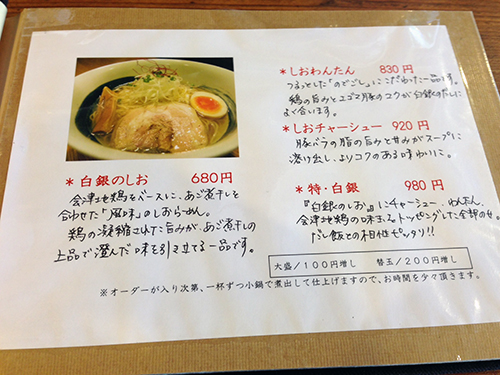 ＊白銀のしお 680円
会津地鶏をベースに、あご煮干しと
合わせた「風味」のしおらーめん。
鶏の凝縮された旨みが、あご煮干しの
上品で澄んだ味を引き立てる一品です。
＊しおわんたん 830円
つるっとした「のどごし」にこだわった一品です。
鶏の旨みとエゴマ豚のコクが白銀のだしに
よく合います。
＊しおチャーシュー 920円
豚バラの脂の旨みと甘みがスープに
溶け出し、よりコクのある味わいに。
＊特・白銀 980円
『白銀のしお』にチャーシュー、わんたん、
会津地鶏の味玉をトッピングした全部のせ。
だし飯との相性ピッタリ!!
大盛/100円増し 替玉/200円増し
※オーダーが入り次第、一杯ずつ小鍋で煮出して仕上げますので、お時間を少々頂きます。